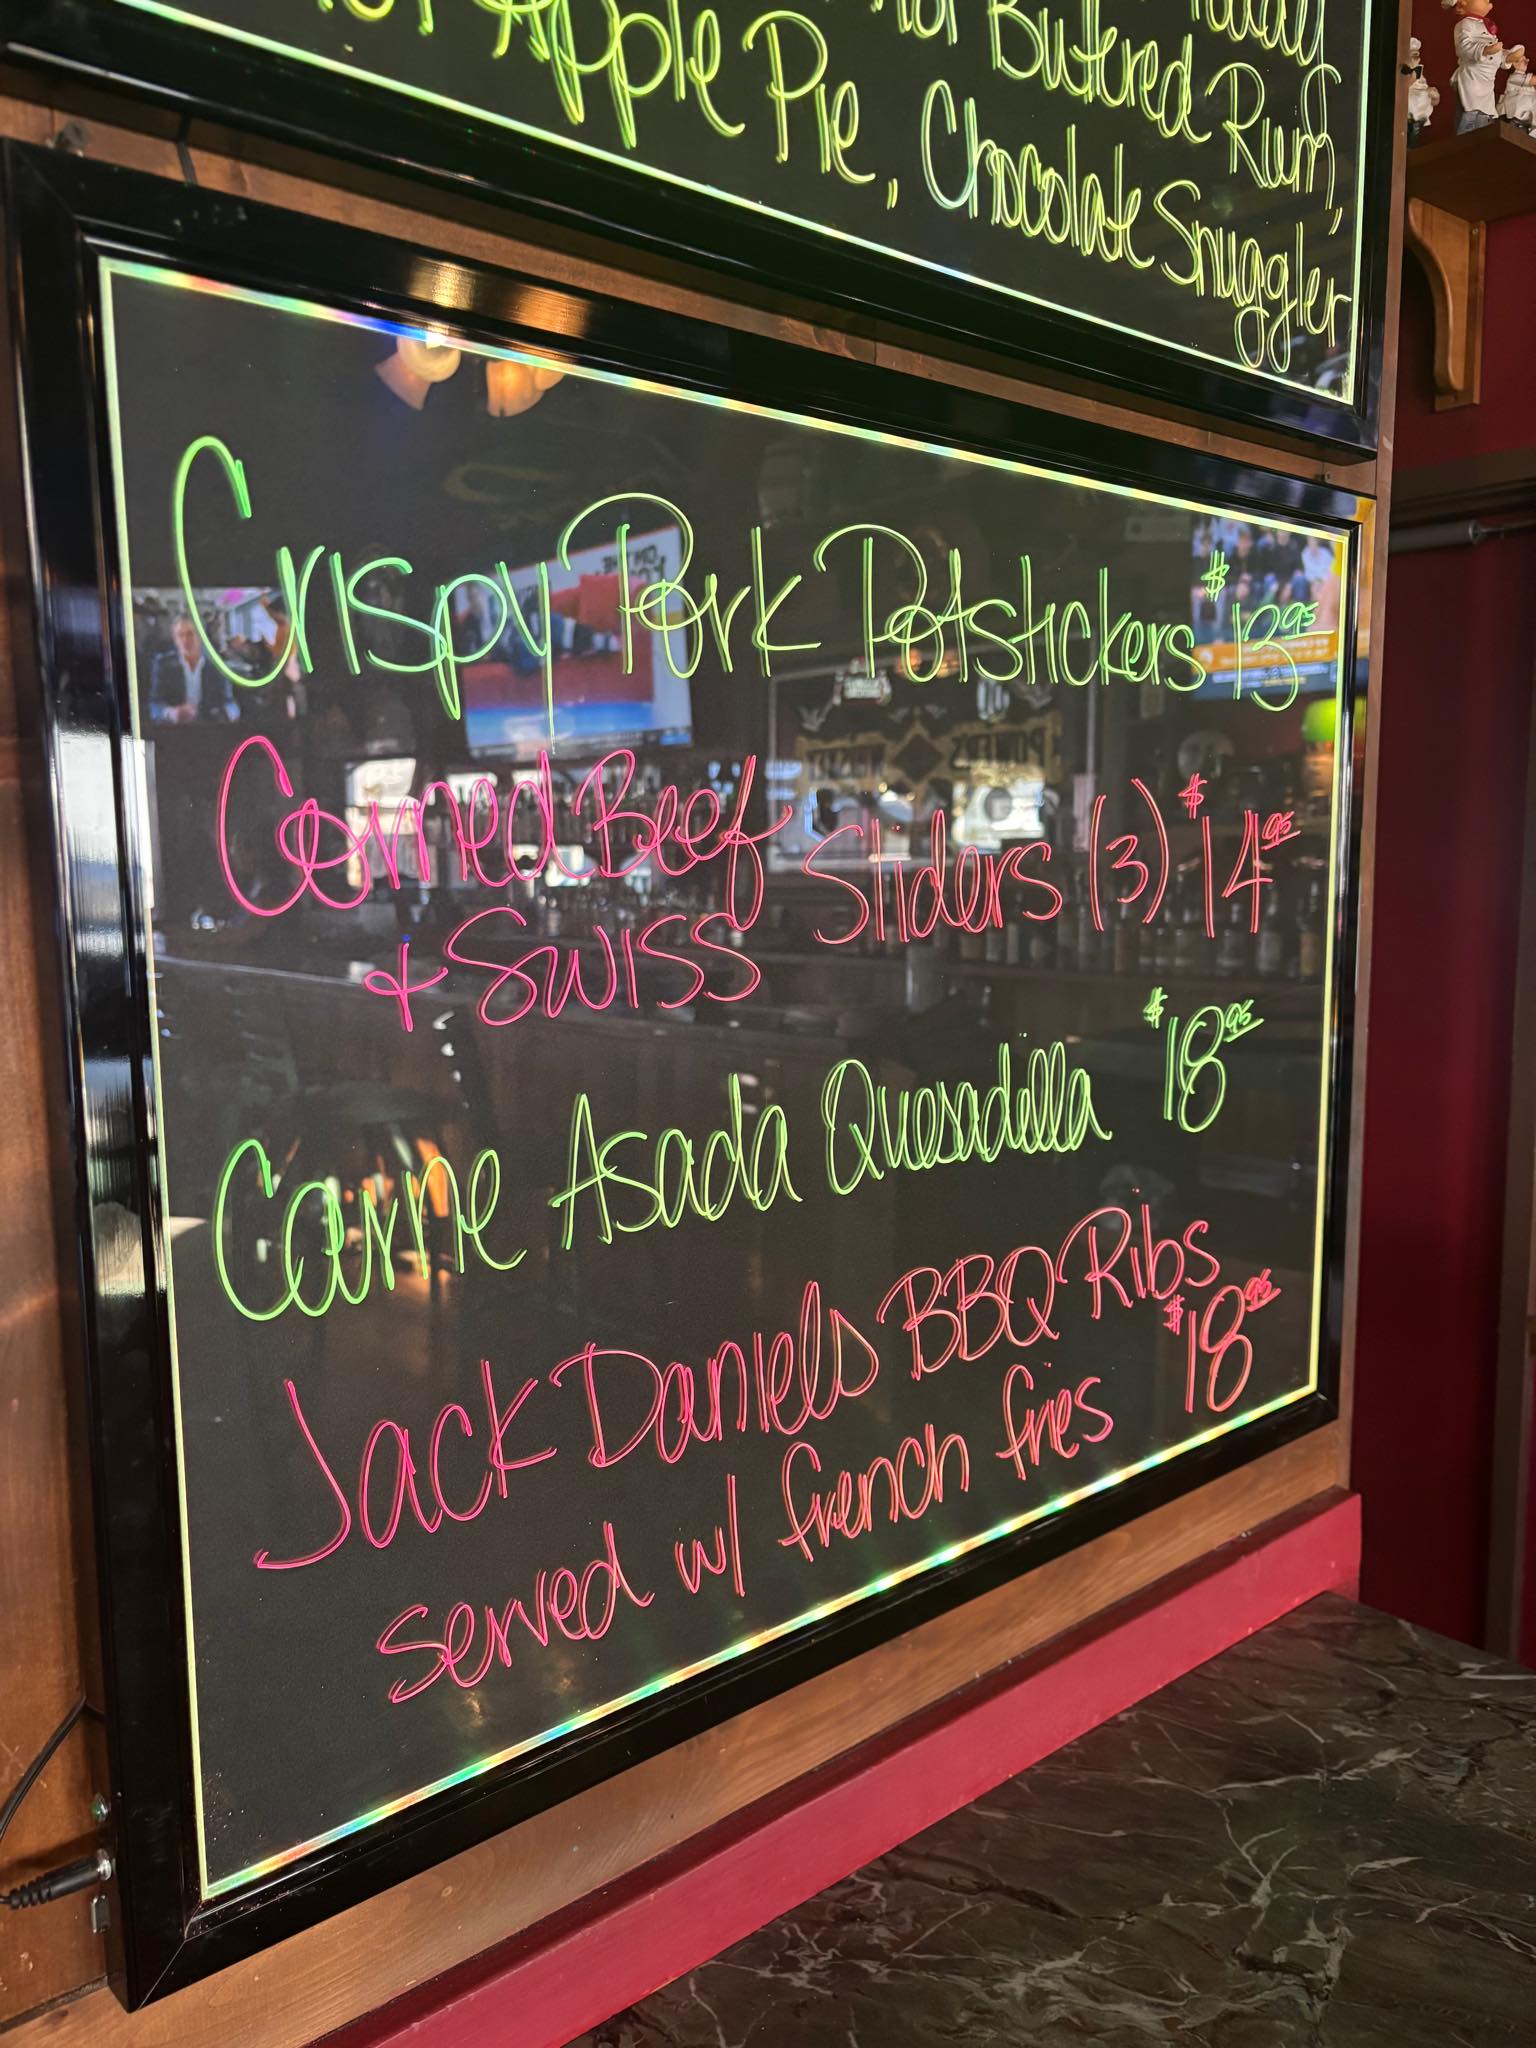 Hot Buttered Rum,
Apple Pie, Chocolate Snuggler
Crispy Pork Potstickers $13.95
Corned Beef
& Swiss Sliders (3) $14.95
Carne Asada Quesadilla $18.95
Jack Daniels BBQ Ribs
served w/ french fries $18.95